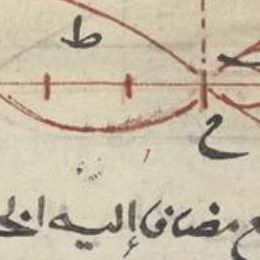 ط
ح
ع مضافا إليه الح